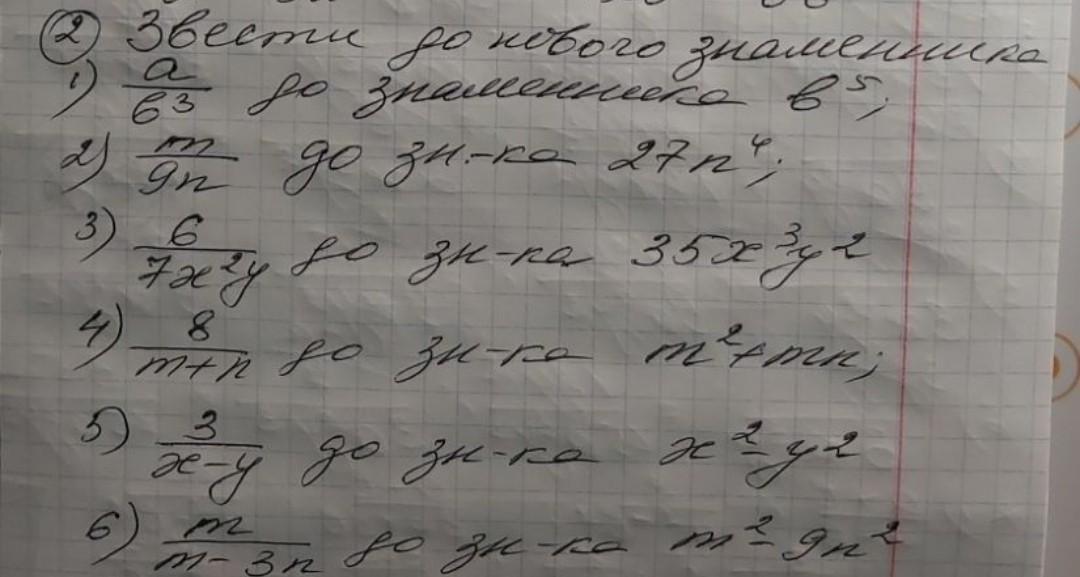 ② Звести до нового знаменника
1) a/b³ до знаменника b⁵;
2) m/9n до зн.-ка 27n⁴;
3) 6/7x²y до зн-ка 35x³y²
4) 8/m+n до зн-ка m²+mn;
5) 3/x-y до зн-ка x²-y²
6) m/m-3n до зн-ка m²-9n²